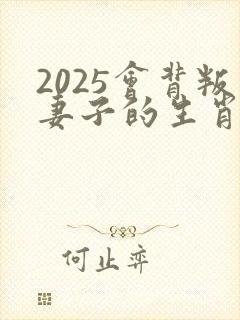 2025會背叛
妻子的生肖
何止弈